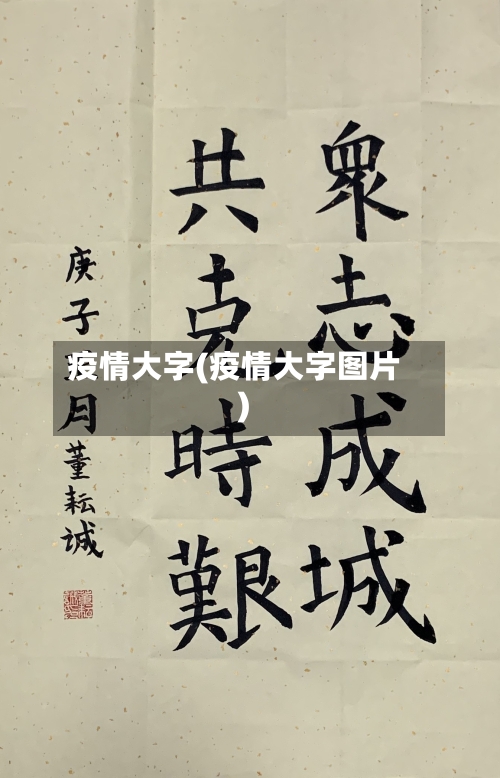 眾志成城
共克時艱
庚子
月董耘诚
疫情大字(疫情大字图片
)